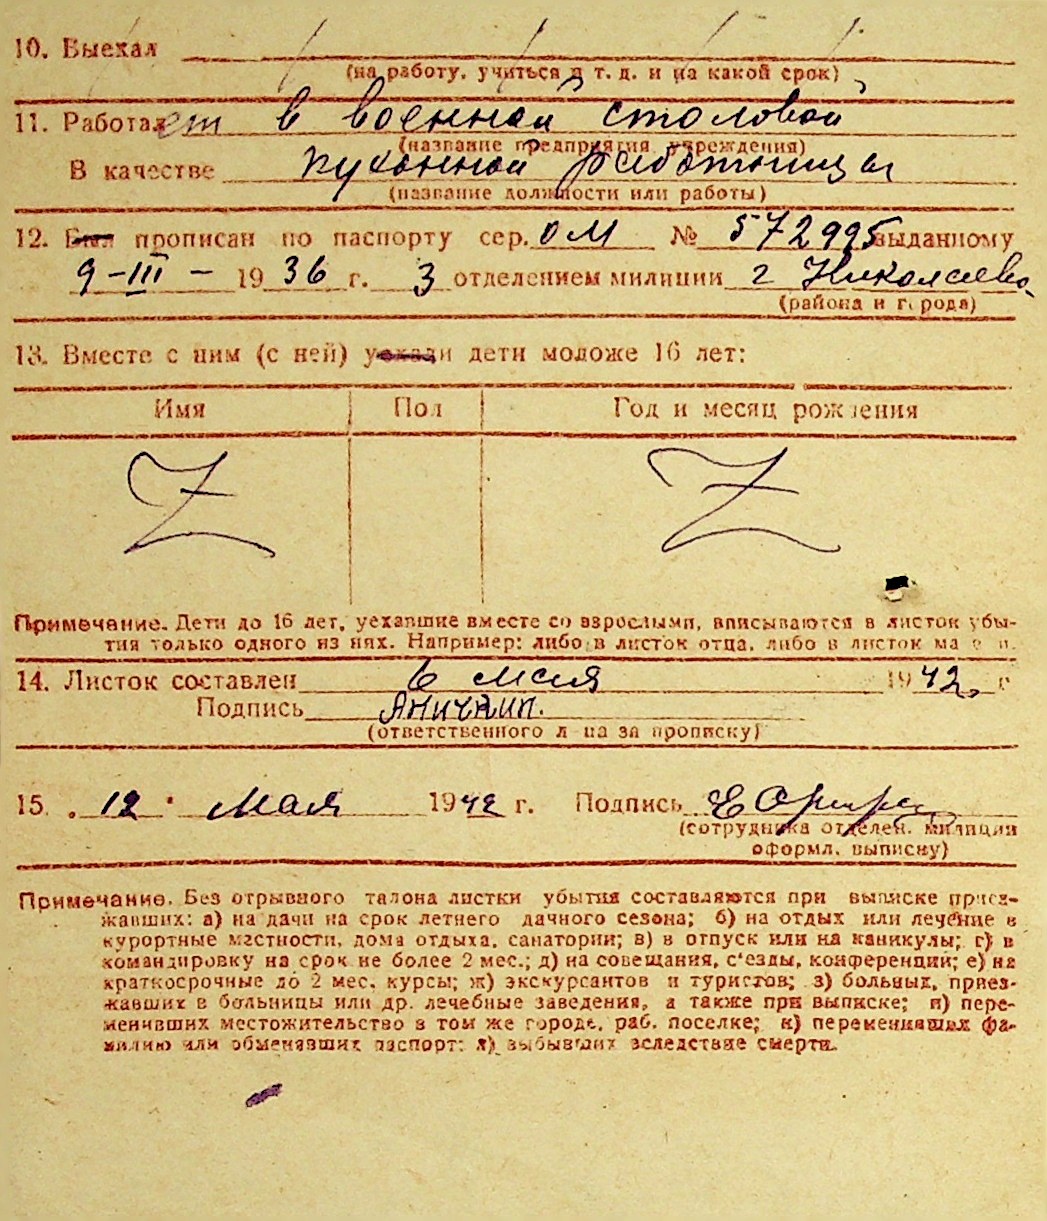 10. Выехал
(на работу, учиться и т. д. и на какой срок)
11. Работает в военной столовой
(название предприятия, учреждения)
В качестве кухонной работницы
(название должности или работы)
12. Был прописан по паспорту сер. ОМ № 572995 выданному
9-III- 1936 г. 3 отделением милиции г Николаева
(района и города)
13. Вместе с ним (с ней) уехали дети моложе 16 лет:
Имя Пол Год и месяц рождения
Z Z
Примечание. Дети до 16 лет, уехавшие вместе со взрослыми, вписываются в листок убы-
тия только одного из них. Например: либо в листок отца, либо в листок матери.
14. Листок составлен 6 мая 1942 г
Подпись Аничкин.
(ответственного лица за прописку)
15. „12" Мая 1942 г. Подпись Е
(сотрудника отделен. милиции
оформл. выписку)
Примечание. Без отрывного талона листки убытия составляются при выписке приез-
жавших: а) на дачи на срок летнего дачного сезона; б) на отдых или лечение в
курортные местности, дома отдыха, санатории; в) в отпуск или на каникулы; г) в
командировку на срок не более 2 мес.; д) на совещания, с'езды, конференции; е) на
краткосрочные до 2 мес. курсы; ж) экскурсантов и туристов; з) больных, приез-
жавших в больницы или др. лечебные заведения, а также при выписке; и) пере-
менивших местожительство в том же городе, раб. поселке; к) переменивших фа-
милию или обменявших паспорт; л) выбывших вследствие смерти.